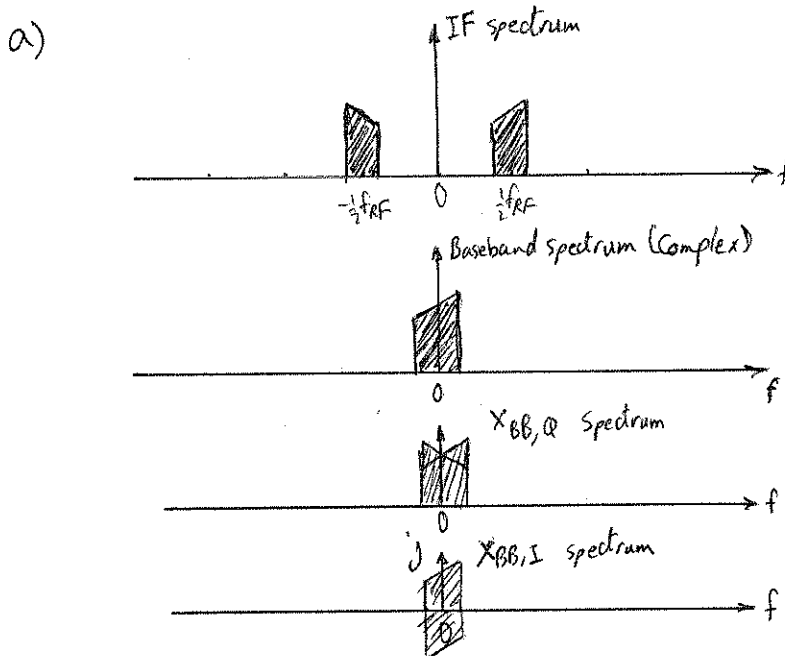 a)
IF spectrum
-½fRF 0 ½fRF f
Baseband spectrum (Complex)
0 f
XBB,Q spectrum
0 f
j XBB,I spectrum
0 f